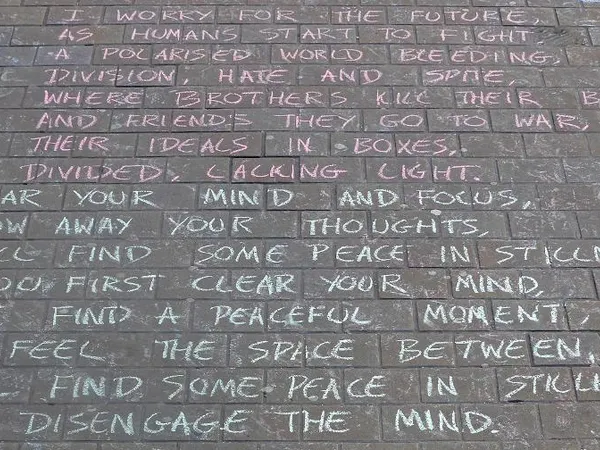 I WORRY FOR THE FUTURE,
AS HUMANS START TO FIGHT.
A POLARISED WORLD BLEEDING,
DIVISION, HATE AND SPITE,
WHERE BROTHERS KILL THEIR B
AND FRIENDS THEY GO TO WAR,
THEIR IDEALS IN BOXES,
DIVIDED, LACKING LIGHT.
AR YOUR MIND AND FOCUS,
OW AWAY YOUR THOUGHTS,
LL FIND SOME PEACE IN STILLN
OU FIRST CLEAR YOUR MIND,
FIND A PEACEFUL MOMENT,
FEEL THE SPACE BETWEEN,
LL FIND SOME PEACE IN STILL
DISENGAGE THE MIND.